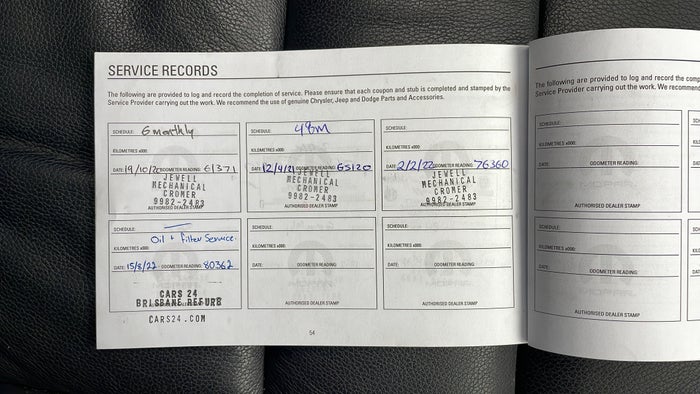 SERVICE RECORDS
The following are provided to log and record the completion of service. Please ensure that each coupon and stub is completed and stamped by the
Service Provider carrying out the work. We recommend the use of genuine Chrysler, Jeep and Dodge Parts and Accessories.
SCHEDULE: 6 monthly
KILOMETRES x000:
DATE: 19/10/20 ODOMETER READING: 61371
JEWELL
MECHANICAL
CROMER
9982-2483
AUTHORISED DEALER STAMP
SCHEDULE: 48M
KILOMETRES x000:
DATE: 12/4/21 ODOMETER READING: 65120
JEWELL
MECHANICAL
CROMER
9982-2483
AUTHORISED DEALER STAMP
SCHEDULE:
KILOMETRES x000:
DATE: 2/2/22 ODOMETER READING: 76360
JEWELL
MECHANICAL
CROMER
9982-2483
AUTHORISED DEALER STAMP
SCHEDULE:
Oil + Filter Service.
KILOMETRES x000:
DATE: 15/8/22 ODOMETER READING: 80362
CARS 24
BRISBANE REFURB
AUTHORISED DEALER STAMP
CARS24.COM
SCHEDULE:
KILOMETRES x000:
DATE: ODOMETER READING:
AUTHORISED DEALER STAMP
SCHEDULE:
KILOMETRES x000:
DATE: ODOMETER READING:
AUTHORISED DEALER STAMP
54
The following are provided to log and record the
Service Provider carrying out the work. We recommend
SCHEDULE:
KILOMETRES x000:
DATE: ODOMETER READING:
AUTHORISED DEALER STAMP
SCHEDULE:
KILOMETRES x000:
DATE: ODOMETER READING:
AUTHORISED DEALER STAMP